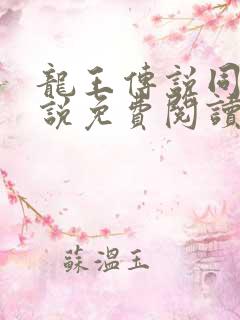 龍王傳說同
說免費閱讀
蘇溫玉